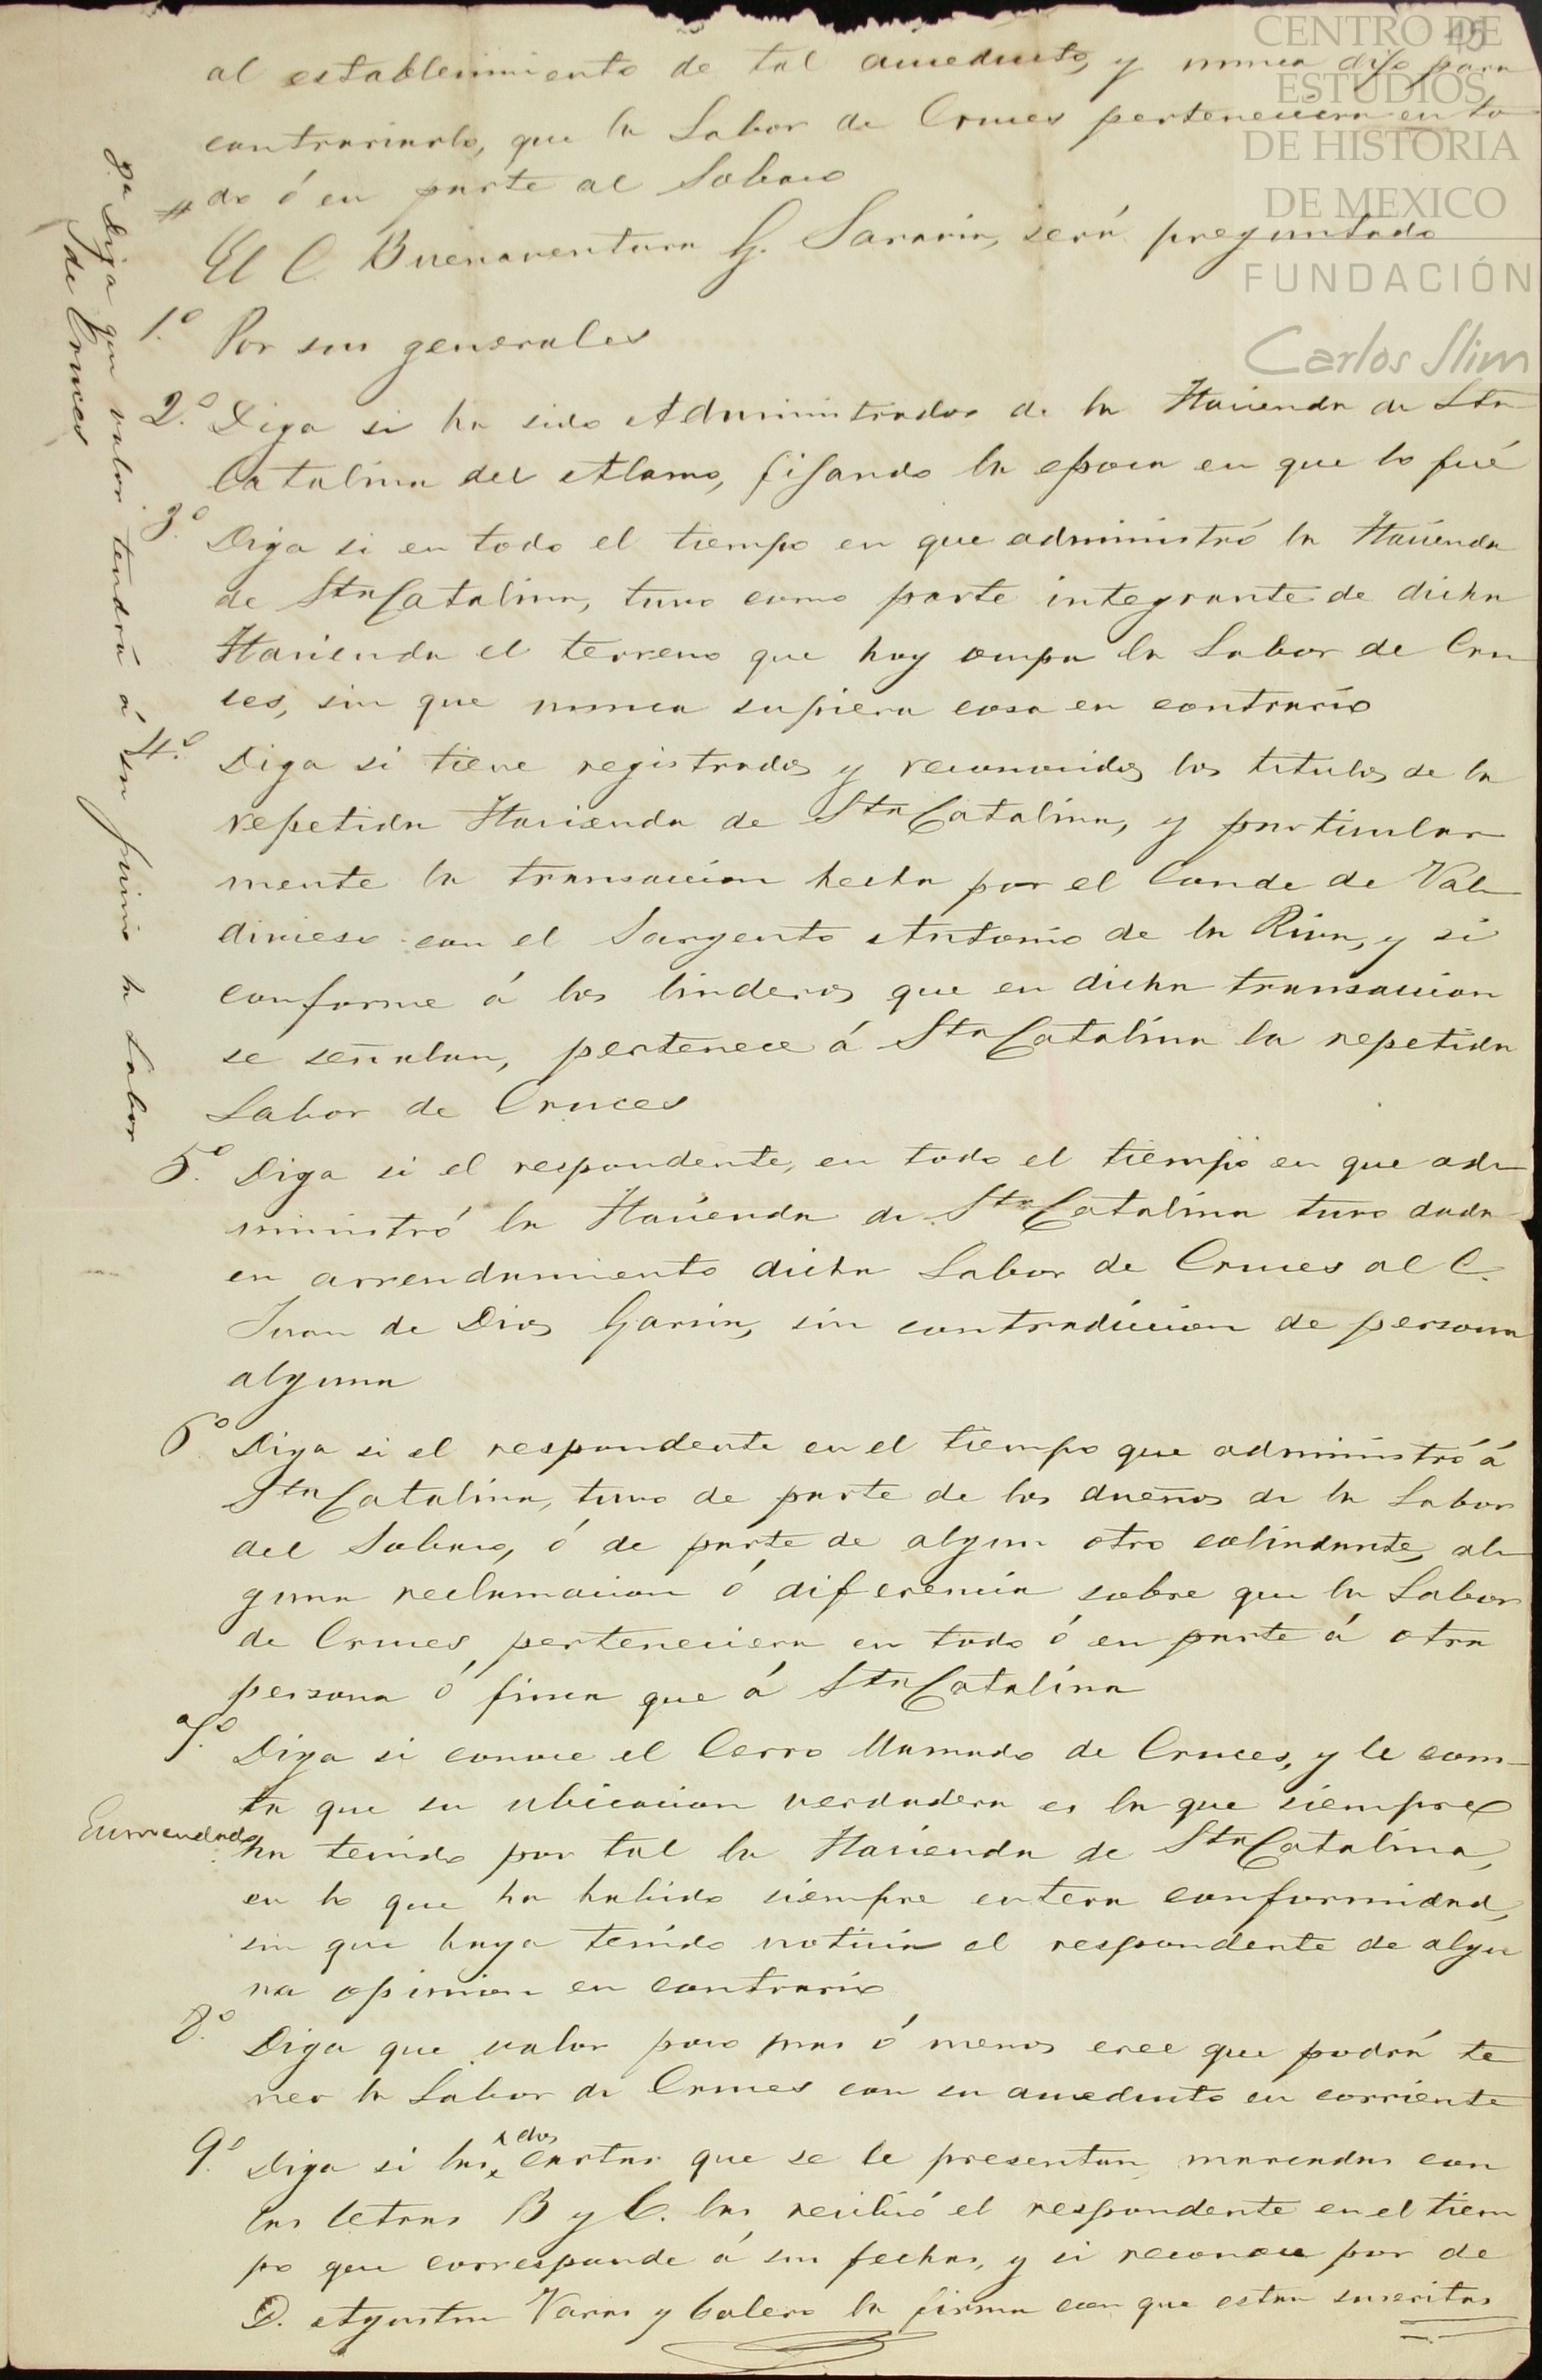 45
CENTRO DE
ESTUDIOS
DE HISTORIA
DE MEXICO
FUNDACIÓN
Carlos Slim
al establecimiento de tal acueducto, y nunca dijo para
contrariarlo, que la Labor de Cruces perteneciera en to
do ó en parte al Sobaco
El C. Buenaventura G. Saravia, será preguntado
1.º Por sus generales
2.º Diga si ha sido Administrador de la Hacienda de Sta
Catalina del Alamo, fijando la epoca en que lo fué
3.º Diga si en todo el tiempo en que administró la Hacienda
de Sta Catalina, tuvo como parte integrante de dicha
Hacienda el terreno que hoy ocupa la Labor de Cru
ces, sin que nunca supiera cosa en contrario
4.º Diga si tiene registrados y reconocidos los titulos de la
repetida Hacienda de Sta Catalina, y particular
mente la transaccion hecha por el Conde de Val
divieso con el Sargento Antonio de la Riva, y si
conforme á los linderos que en dicha transaccion
se señalan, pertenece á Sta Catalina la repetida
Labor de Cruces
5.º Diga si el respondente, en todo el tiempo en que ad
ministró la Hacienda de Sta Catalina tuvo dada
en arrendamiento dicha Labor de Cruces al C.
Juan de Dios Garcia, sin contradiccion de persona
alguna
6º Diga si el respondente en el tiempo que administró á
Sta Catalina, tuvo de parte de los dueños de la Labor
del Sobaco, ó de parte de algun otro colindante, al
guna reclamacion ó diferencia sobre que la Labor
de Cruces, perteneciera en todo ó en parte á otra
persona ó finca que á Sta Catalina
7.º Diga si conoce el Cerro llamado de Cruces, y le cons
ta que su ubicacion verdadera es la que siempre
Enmendado
ha tenido por tal la Hacienda de Sta Catalina,
en lo que ha habido siempre entera conformidad,
sin que haya tenido noticia el respondente de algu
na opinion en contrario
8.º Diga que valor poco mas ó menos cree que podrá te
ner la Labor de Cruces con su acueducto en corriente
9.º Diga si las dos cartas que se le presentan marcadas con
las letras B y C. las recibió el respondente en el tiem
po que corresponde á sus fechas, y si reconoce por de
D. Agustin Varas y Valero la firma con que estan suscritas
8ª Diga que valor tendrá á su juicio la Labor
de Cruces